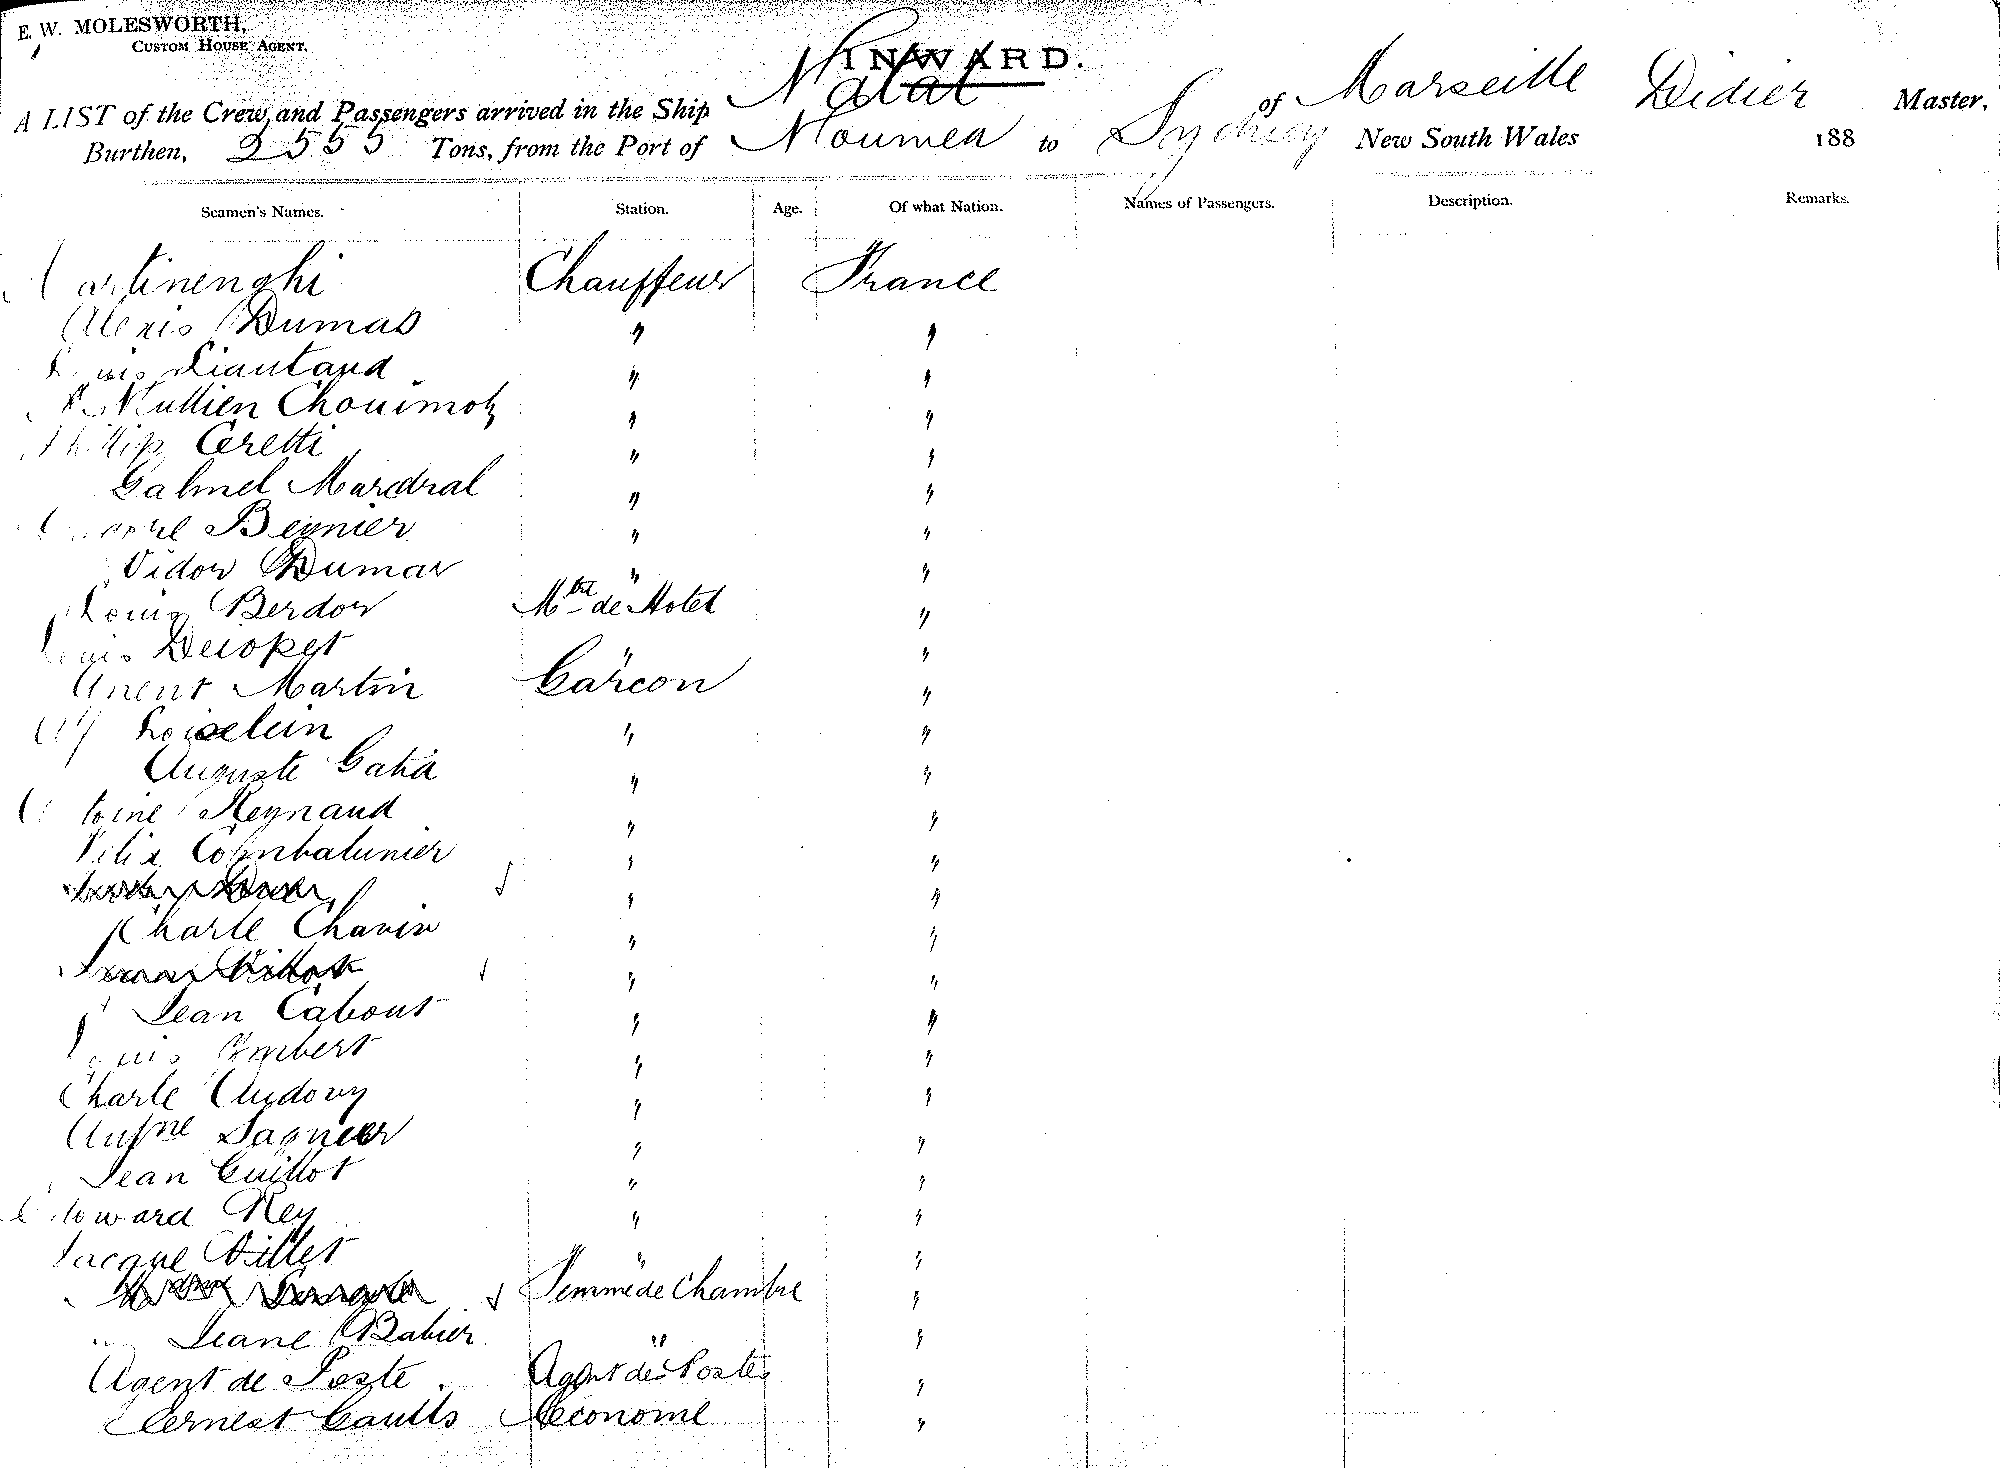 E. W. MOLESWORTH,
CUSTOM HOUSE AGENT.
INWARD.
A LIST of the Crew and Passengers arrived in the Ship Natal of Marseille Didier Master,
Burthen, 2555 Tons, from the Port of Noumea to Sydney New South Wales 188
Seamen's Names. Station. Age. Of what Nation. Names of Passengers. Description. Remarks.
artinenghi Chauffeur France
Alexis Dumas " "
Liautaud " "
Chouimotz " "
Phillip Ceretti " "
Gabriel Mardral " "
Beynier " "
Vidor Dumar " "
Louis Berdor Mtre de Hotel "
Louis Deiopet " "
Martin Garcon "
" "
Auguste Gatia " "
toine Reynaud " "
Felix Combalunier " "
" "
Charle Chavin " "
" "
Jean Cabout " "
Louis Imbert " "
Charle Audouy " "
Sagnier " "
Jean Guillot " "
Edoward Rey " "
Jacque Villet " "
Femme de Chambre "
Jeane Babier " "
Agent de Poste Agent des Postes "
Ernest Gautts Econome "